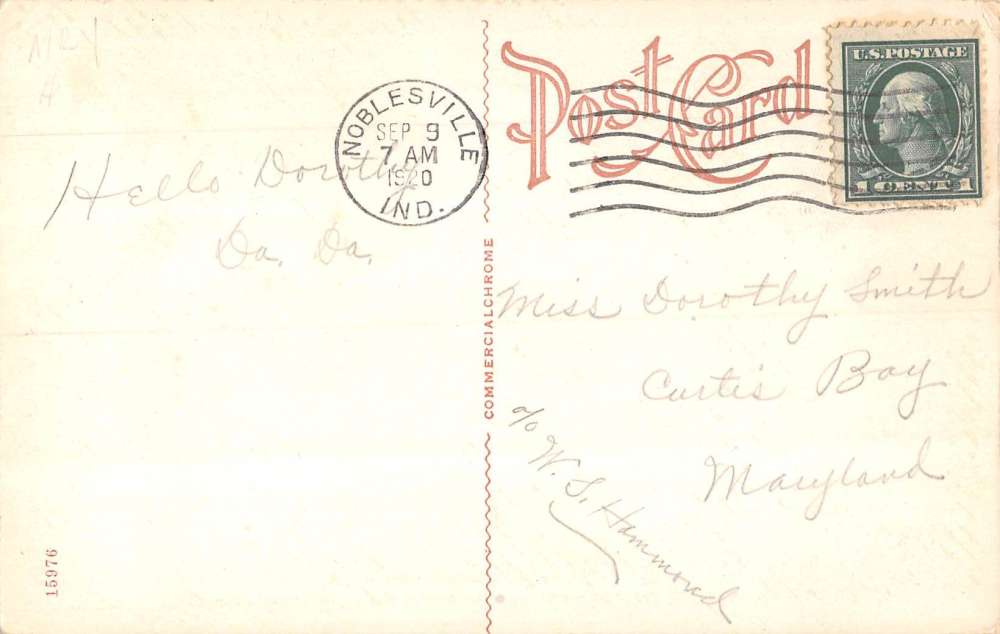 Hello Dorothy
Da. Da.
NOBLESVILLE
SEP 9
7 AM
1920
IND.
15976
COMMERCIALCHROME
Post Card
U.S. POSTAGE
1 CENT 1
Miss Dorothy Smith
Curtis Bay
Maryland
c/o W. S. Hammond